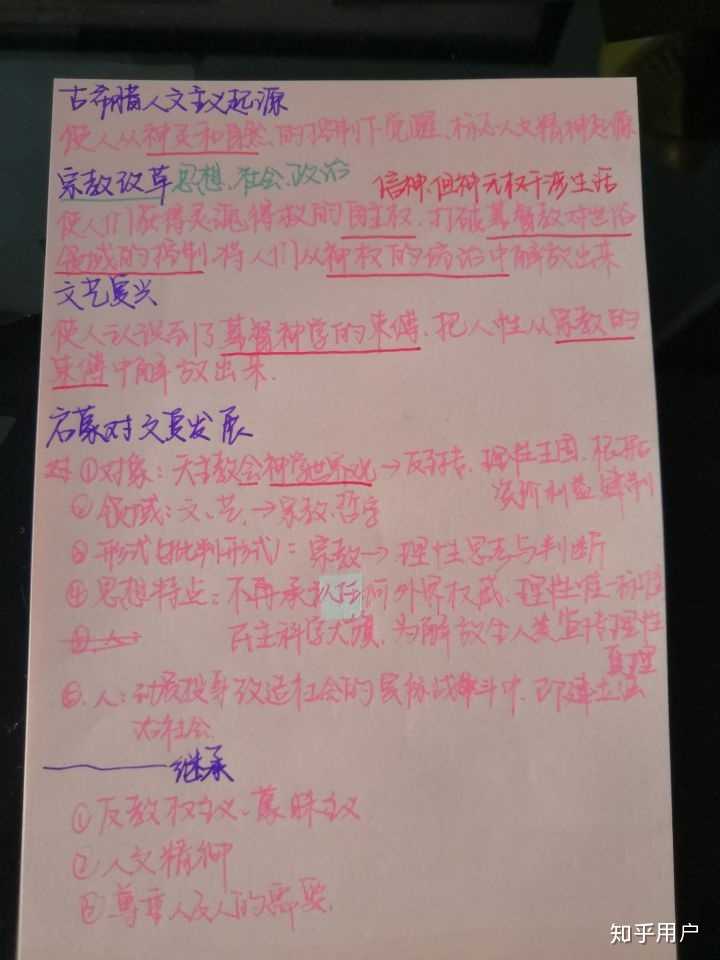 古希腊人文主义起源
使人从神灵和自然的控制下觉醒,标志人文精神起源
宗教改革 思想、社会、政治 信神,但神无权干涉生活
使人们获得灵魂得救的自主权,打破基督教对世俗
领域的控制,将人们从神权的统治中解放出来
文艺复兴
使人认识到了基督神学的束缚,把人性从宗教的
束缚中解放出来.
启蒙对文复发展
①对象:天主教会神学世界观→ 理性王国,
资阶利益
②领域:文、艺.→宗教、哲学
③形式(批判形式):宗教→理性思考与判断
④思想特点:不再承认任何外界权威,理性唯一
民主科学大旗,为解放全人类坚持理性
真理
⑥.人: 改造社会的 斗中,即建立法
治社会.
继承
①反教权主义、蒙昧主义
②人文精神
③尊重人及人的需要.
知乎用户